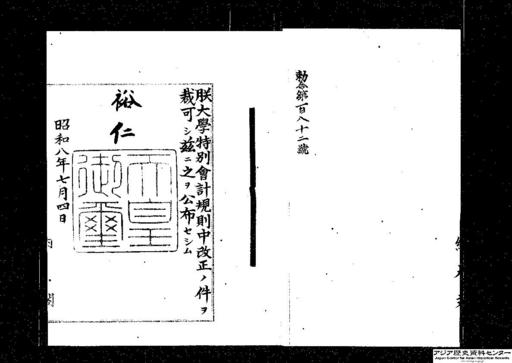 勅令第百八十二號
朕大學特別會計規則中改正ノ件ヲ
裁可シ茲ニ之ヲ公布セシム
裕仁
天皇御璽
昭和八年七月四日
内閣
アジア歴史資料センター
Japan Center for Asian Historical Records